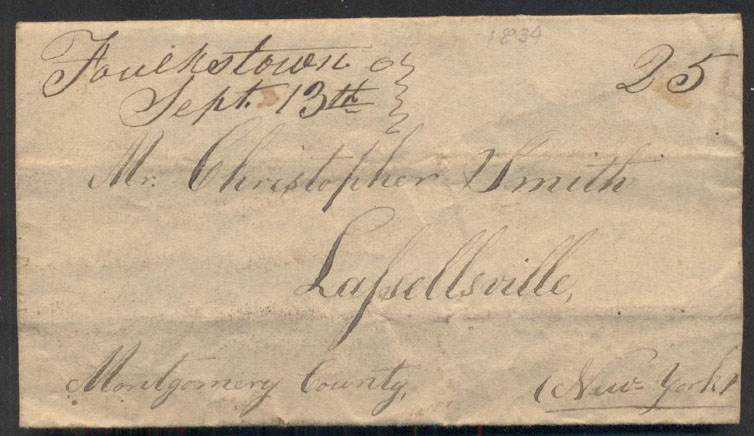 1834
Foulkstown o 25
Sept. 13th
Mr. Christopher Smith
Laſsellsville,
Montgomery County,
(New York)